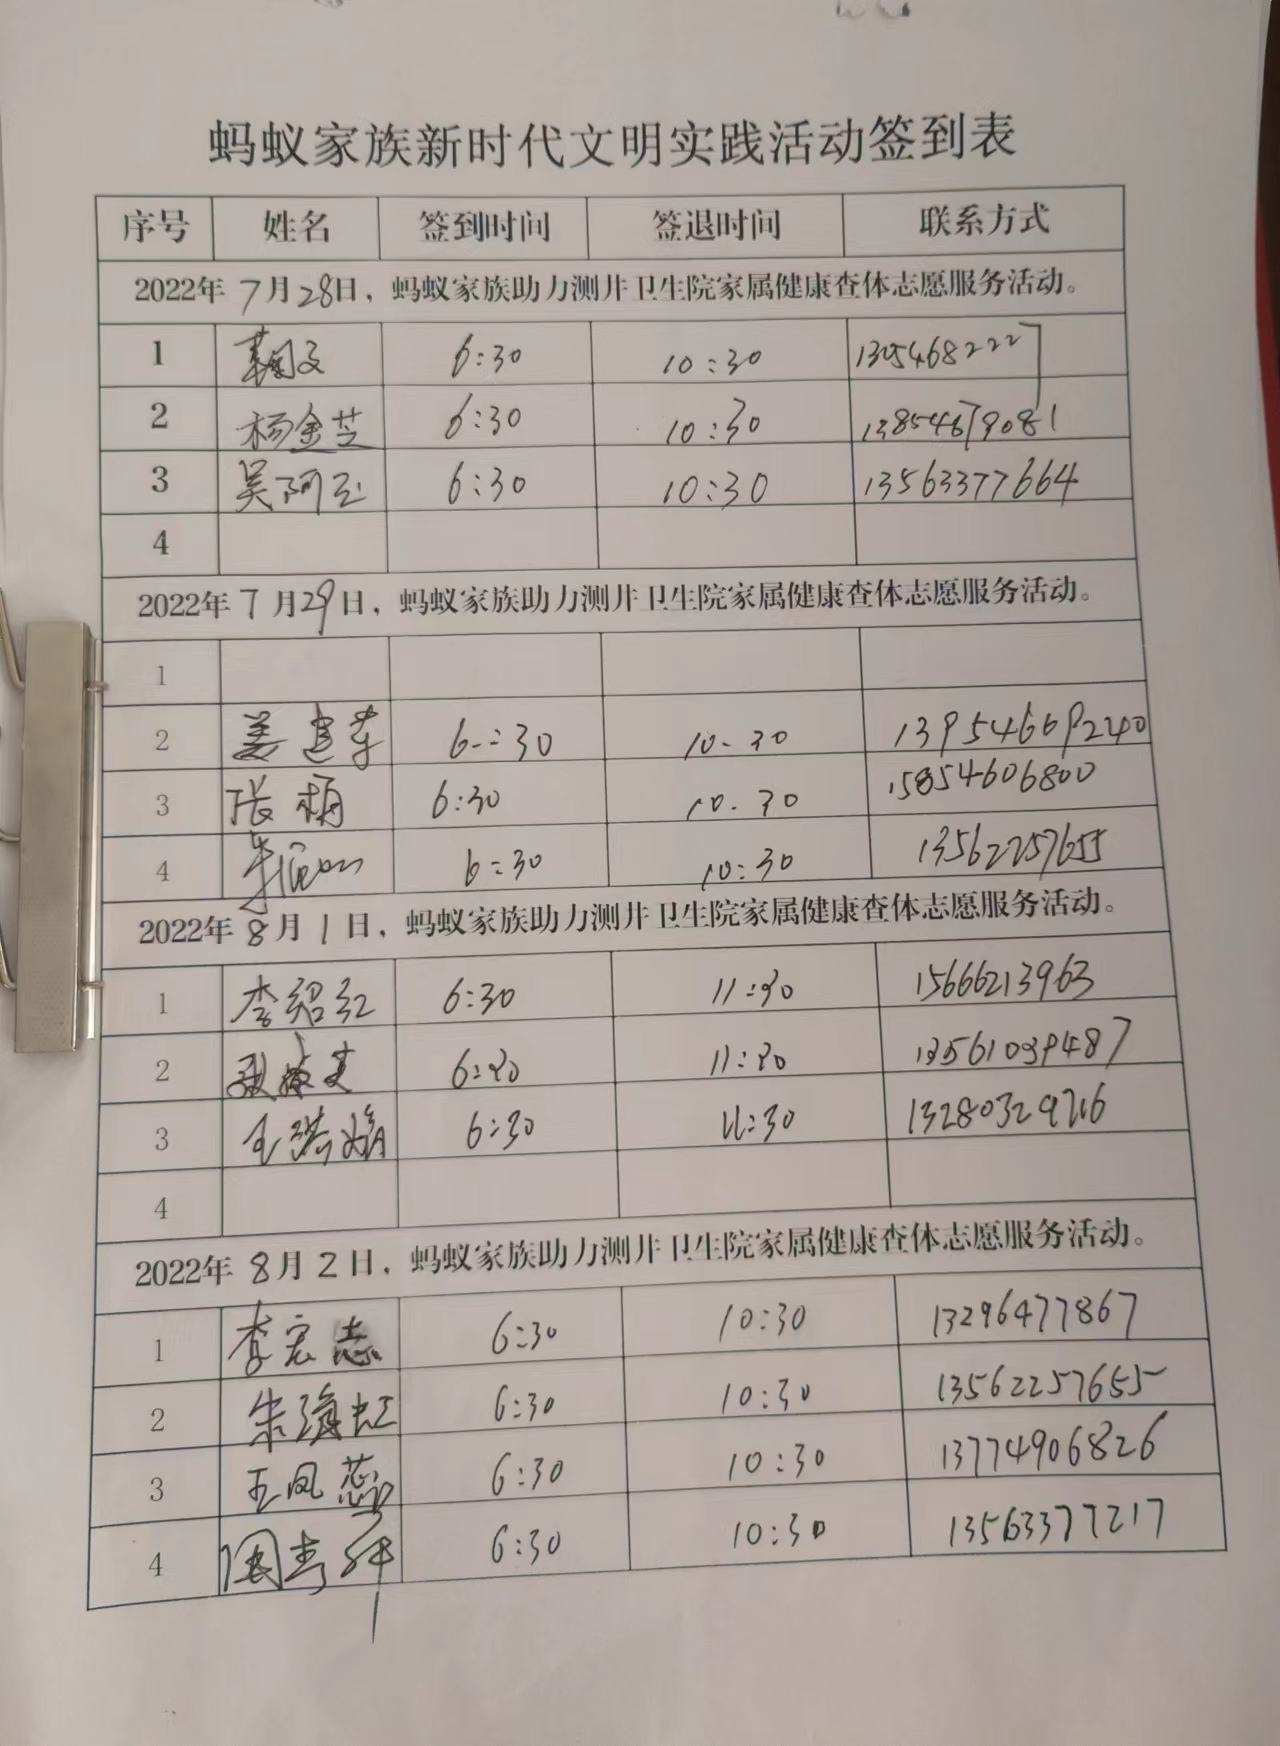 蚂蚁家族新时代文明实践活动签到表
序号 姓名 签到时间 签退时间 联系方式
2022年7月28日，蚂蚁家族助力测井卫生院家属健康查体志愿服务活动。
1 6:30 10:30 13054682227
2 杨金芝 6:30 10:30 13854679081
3 吴阿玉 6:30 10:30 13563377664
4
2022年7月29日，蚂蚁家族助力测井卫生院家属健康查体志愿服务活动。
1
2 姜建苹 6:30 10:30
3 张梅 6:30 10:30 15854606800
4 6:30 10:30 13562257655
2022年8月1日，蚂蚁家族助力测井卫生院家属健康查体志愿服务活动。
1 李绍红 6:30 11:30 15666213963
2 6:30 11:30 13561039487
3 王瑞娟 6:30 11:30 13280329216
4
2022年8月2日，蚂蚁家族助力测井卫生院家属健康查体志愿服务活动。
1 李宏志 6:30 10:30 13296477867
2 朱海虹 6:30 10:30 13562257655
3 王凤蕊 6:30 10:30 13774906826
4 6:30 10:30 13563377217